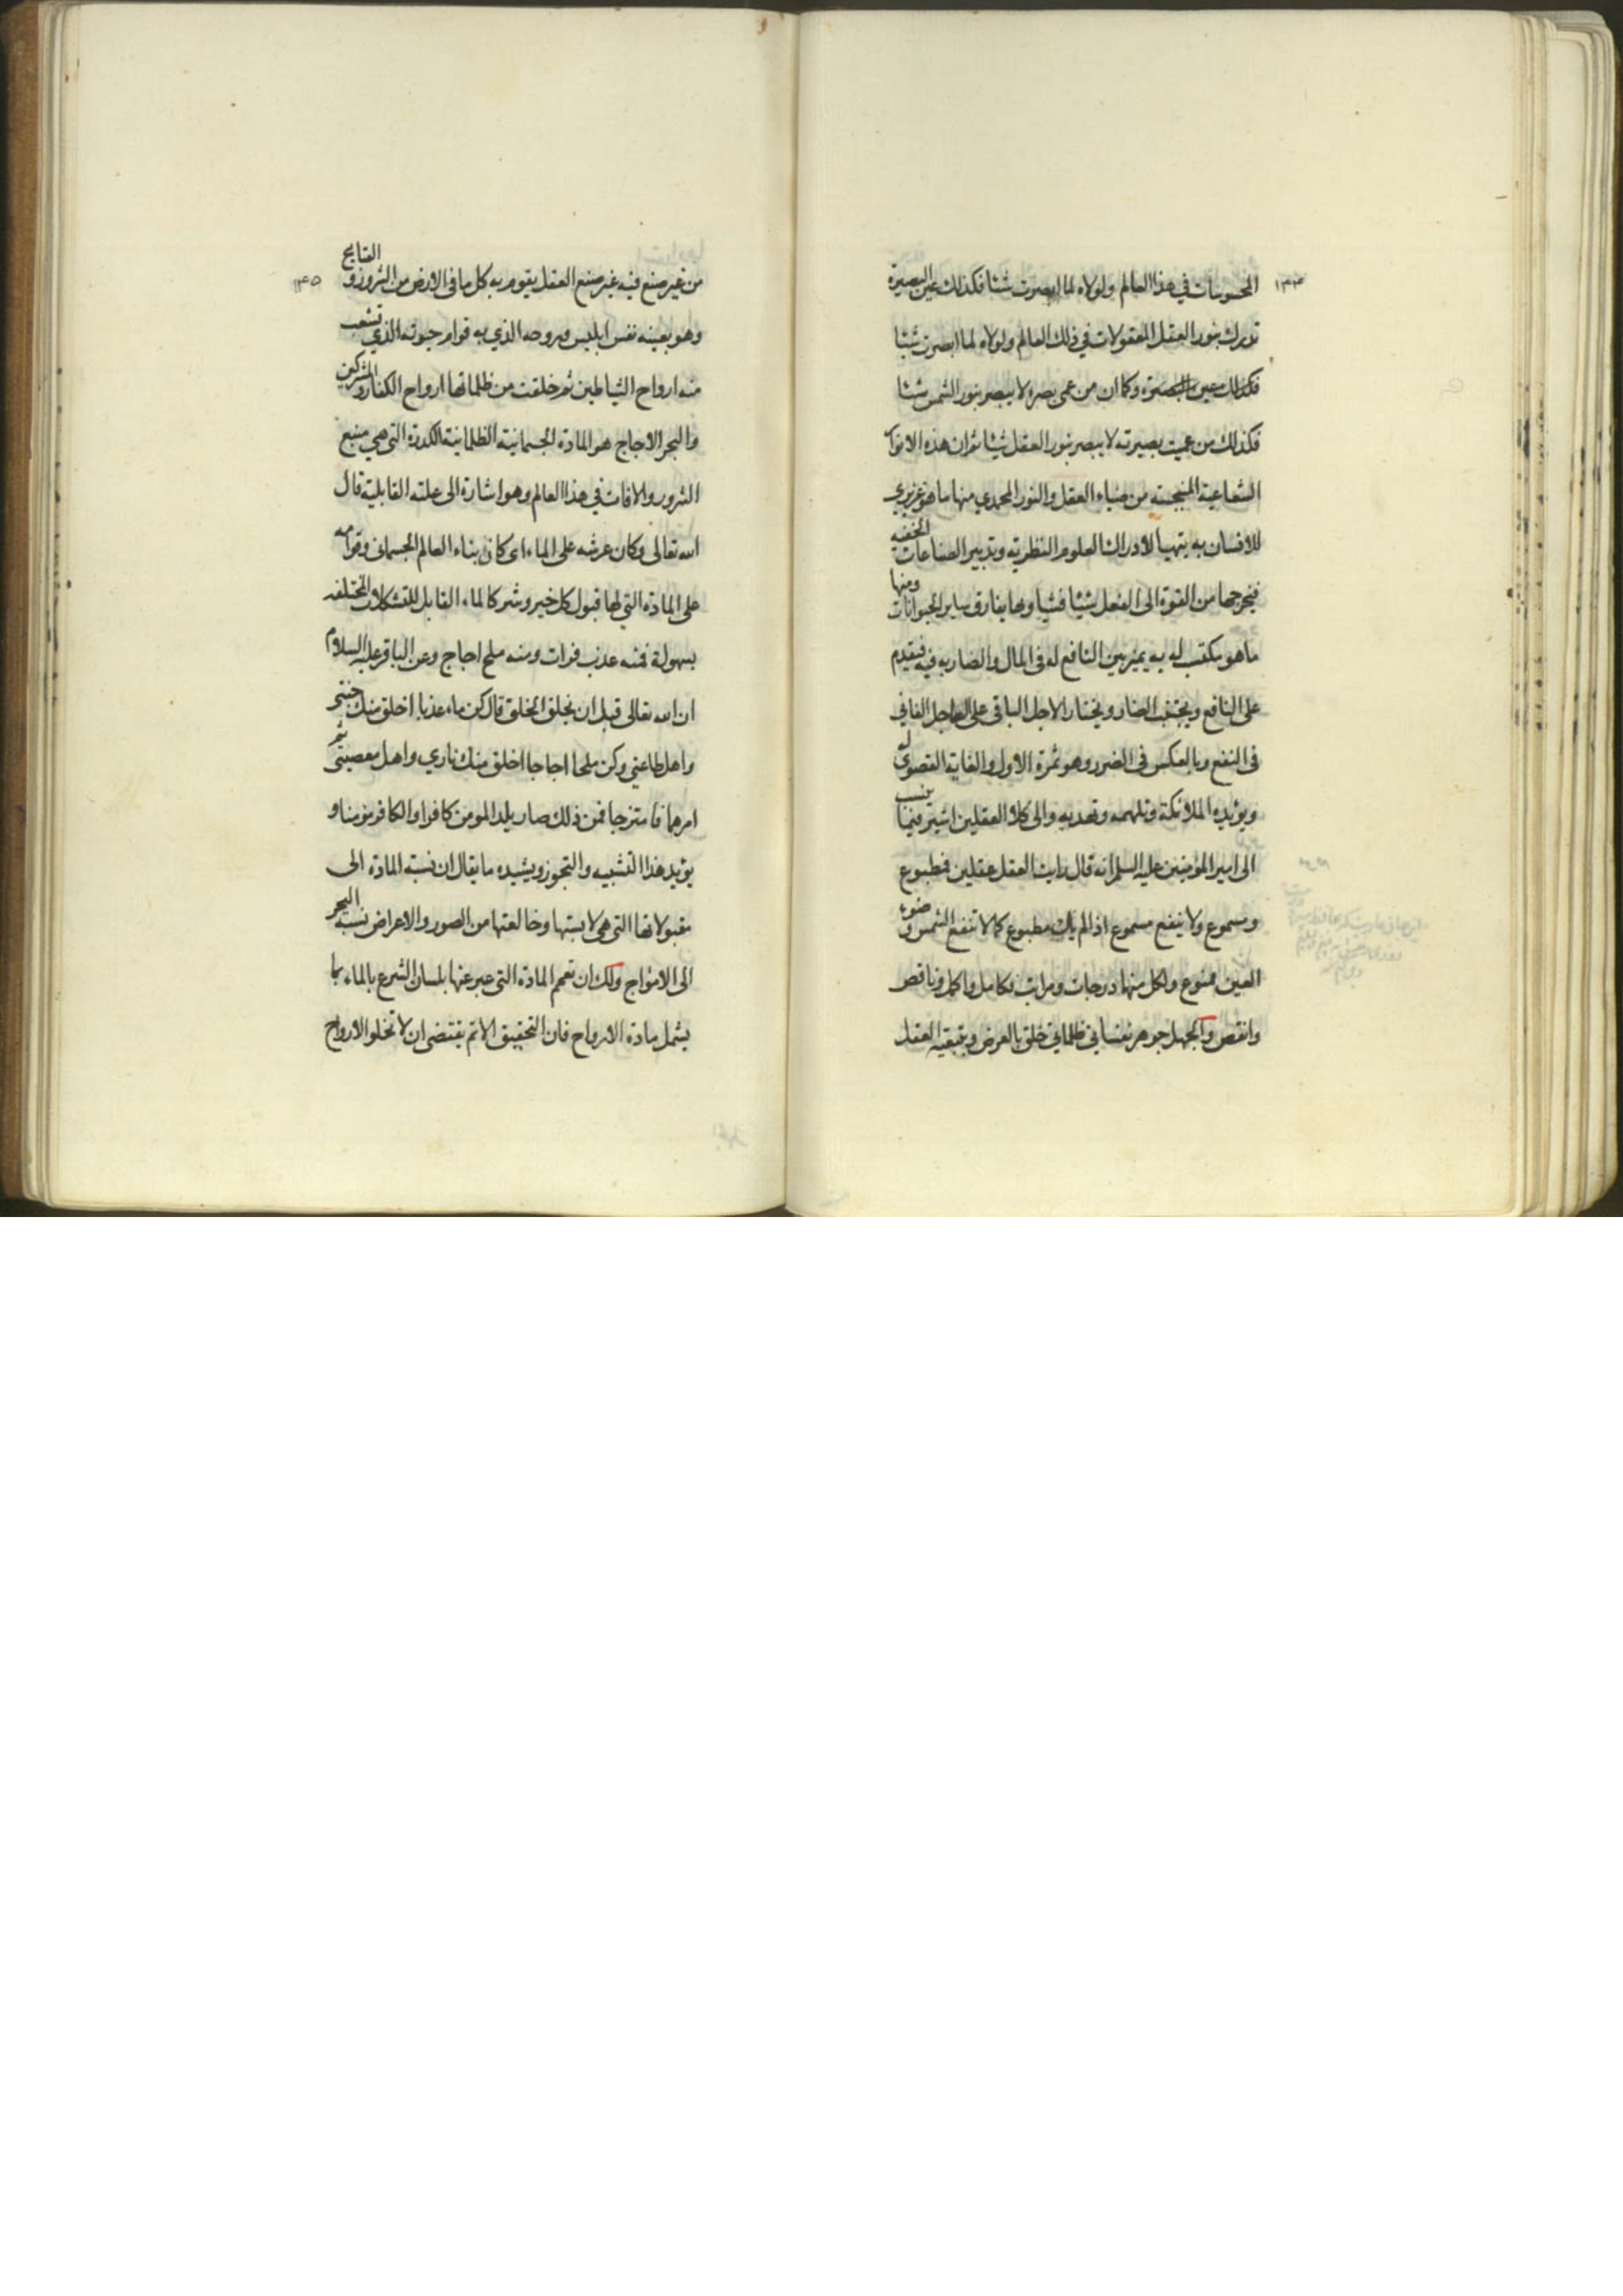 ١٣٤
المحسوسات في هذا العالم ولولاه لما ابصرت شيئا فكذلك عين البصيرة
تدرك بنور العقل المعقولات في ذلك العالم ولولاه لما ابصرت شيئا
فكذلك عين البصيرة وكما ان من عمى بصره لا يبصر بنور الشمس شيئا
فكذلك من عميت بصيرته لا يبصر بنور العقل شيئا ثم ان هذه الانوار
الشعاعية المنبجسة من ضياء العقل والنور المحمدي منها ما هو غريزي
للانسان به يتهيأ لادراك العلوم النظرية وتدبير الصناعات الخفية
فيخرجها من القوة الى الفعل شيئا فشيئا وبها يفارق ساير الحيوانات ومنها
ما هو مكتسب له به يميز بين النافع له في المال والضار به فيه فيقدم
على النافع ويجتنب الضار ويختار الاجل الباقي على العاجل الفاني
في النفع وبالعكس في الضرر وهو ثمرة الاول والغاية القصوى له
ويؤيده الملائكة وتلهمه وتهديه والى كلا العقلين اشير فيما ينسب
الى امير المؤمنين عليه السلم انه قال رايت العقل عقلين فمطبوع
ومسموع ولا ينفع مسموع اذا لم يك مطبوع كما لا تنفع الشمس وضوء
العين ممنوع ولكل منهما درجات ومراتب فكامل واكمل وناقص
وانقص والجهل جوهر نفساني ظلماني خلق بالعرض وبتبعية العقل
١٣٥
من غير صنع فيه غير صنع العقل يقوم به كل ما في الارض من الشرور والقبايح
وهو بعينه نفس ابليس وروحه الذي به قوام حيوته الذي تشعب
منه ارواح الشياطين ثم خلقت من ظلماتها ارواح الكفار والمشركين
والبحر الاجاج هو المادة الجسمانية الظلمانية الكدرة التي هي منبع
الشرور والافات في هذا العالم وهو اشارة الى علته القابلية قال
الله تعالى وكان عرشه على الماء اى كان بناء العالم الجسمانى وقوامه
على المادة التي لها قبول كل خير وشر كالماء القابل للتشكلات المختلفه
بسهولة فمنه عذب فرات ومنه ملح اجاج وعن الباقر عليه السلام
ان الله تعالى قبل ان يخلق الخلق قال كن ماء عذبا اخلق منك جنتي
واهل طاعتي وكن ملحا اجاجا اخلق منك ناري واهل معصيتى ثم
امرهما فامتزجا فمن ذلك صار يلد المومن كافرا والكافر مومنا و
يؤيد هذا التشبيه والتجوز ويشيده ما يقال ان نسبة المادة الى
مقبولاتها التى هى لابستها وخالعتها من الصور والاعراض نسبة البحر
الى الامواج ولك ان تعمم المادة التى عبر عنها بلسان الشرع بالماء بما
يشمل مادة الارواح فان التحقيق الاتم يقتضى ان لا تخلو الارواح